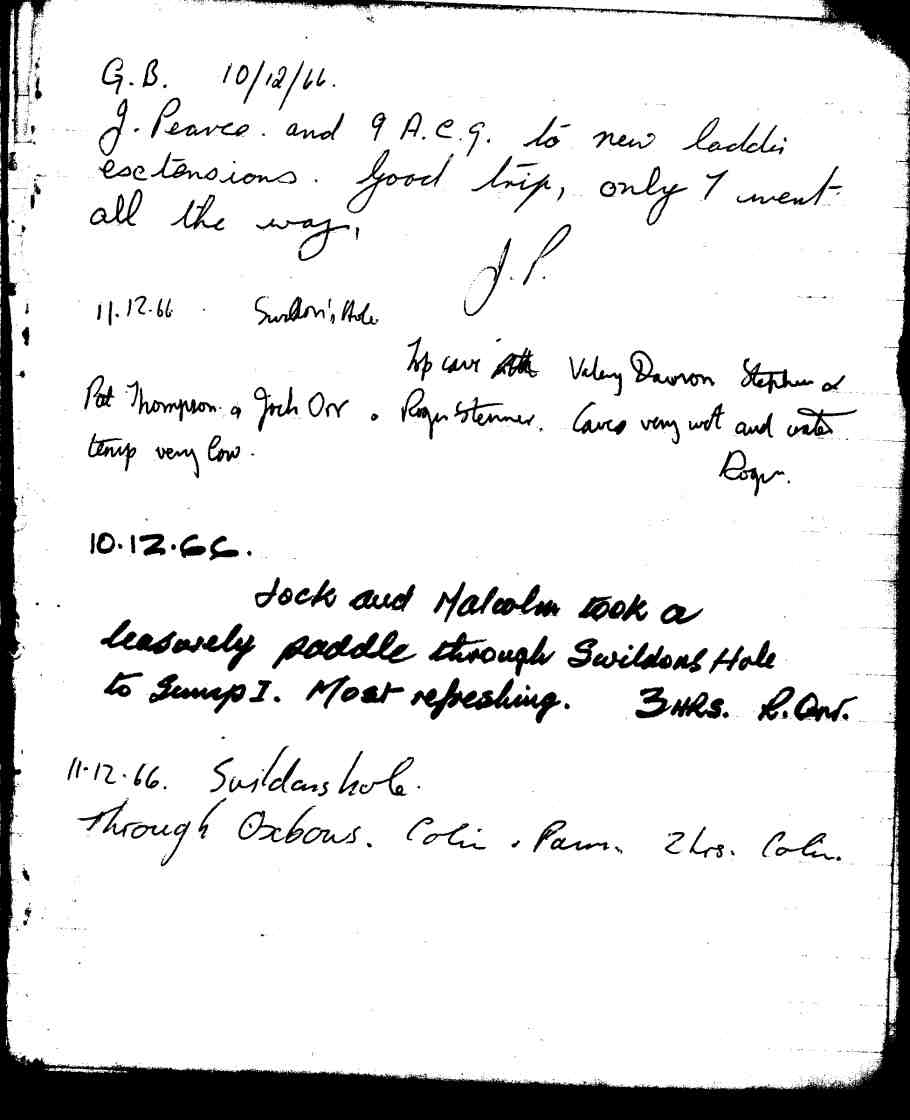 G.B. 10/12/66.
J. Pearce. and 9 A.C.G. to new
esctensions. Good trip, only 7 went
all the way,
J.P.
11.12.66 Swildon's Hole
Top cave Valery Dawson Stephen &
Pat Thompson & Jock Orr & Roger Stenner. Caves very wet and water
temp very low.
Roger.
10.12.66.
Jock and Malcolm took a
leasurely paddle through Swildons Hole
to Sump I. Most refreshing. 3 HRS. R. Orr.
11.12.66. Swildons hole.
Through Oxbows. Colin & Pam. 2 hrs. Colin.